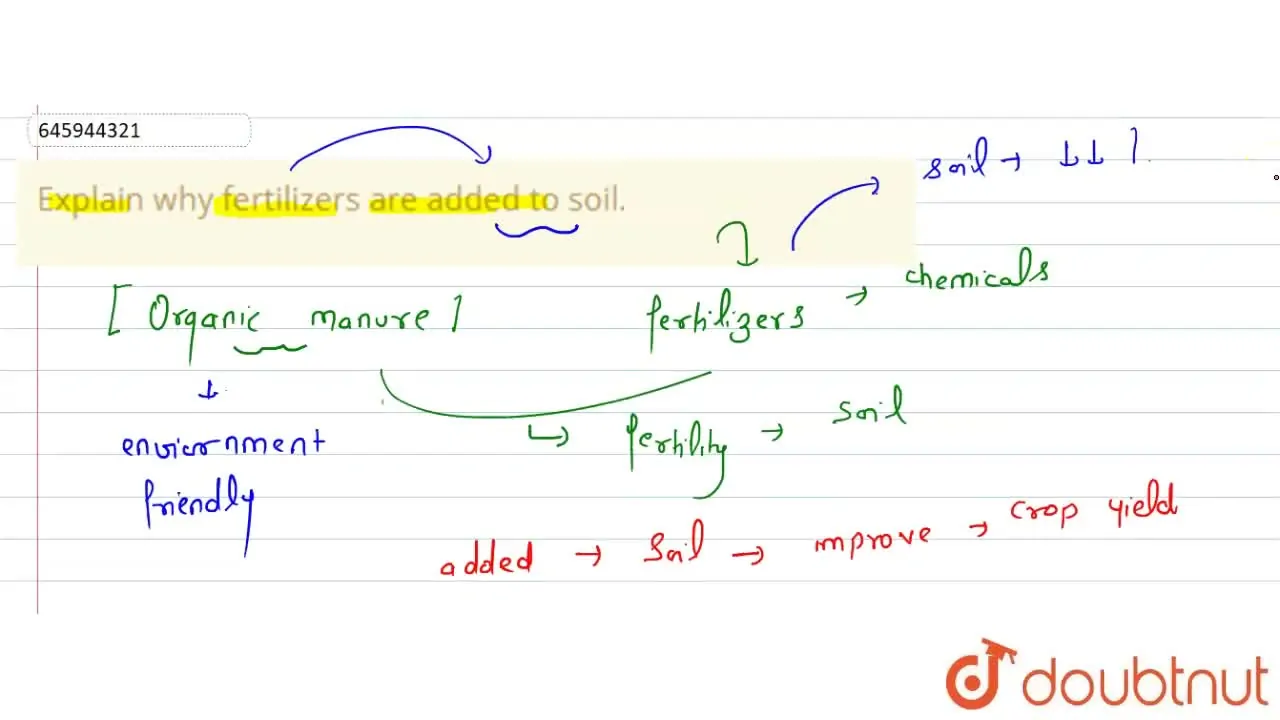 645944321
Explain why fertilizers are added to soil.
soil → ↓↓
[ Organic manure ]
fertilizers → chemicals
↓
enviornment
friendly
↳ fertility → soil
added → soil → improve → crop yield
doubtnut